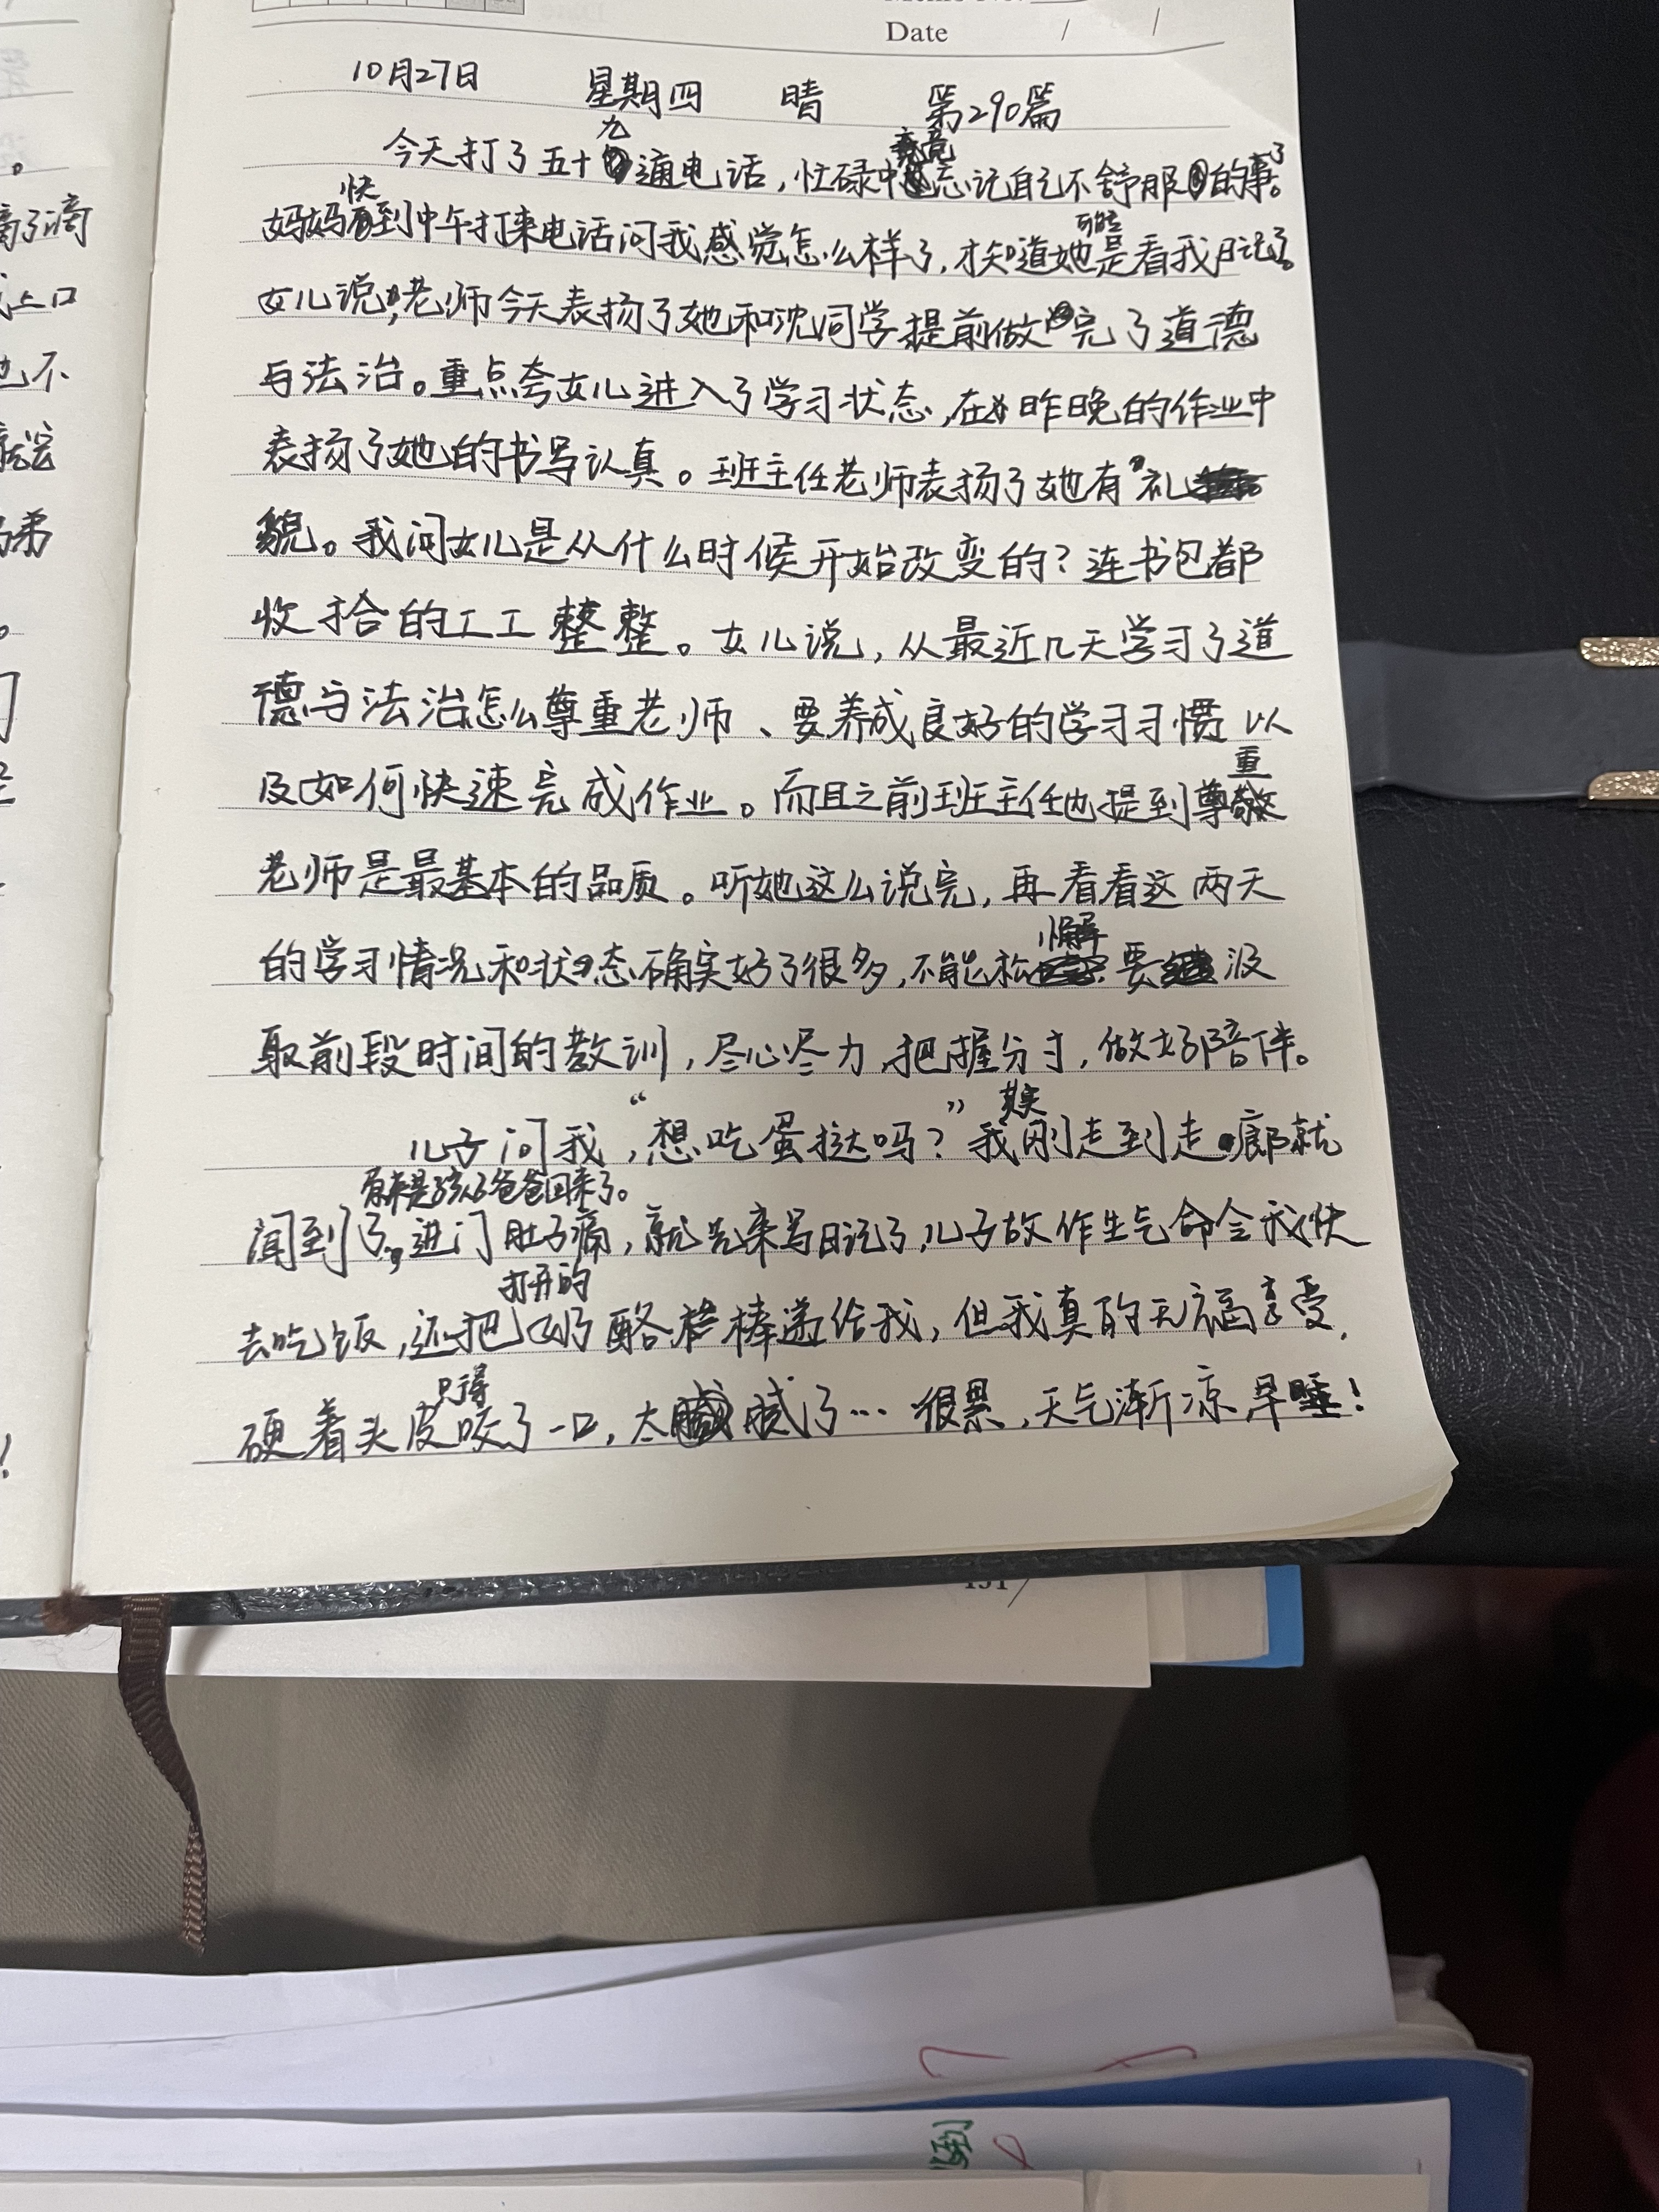 Date / /
10月27日 星期四 晴 第290篇
今天打了五十九通电话,忙碌中竟忘记自己不舒服的事了。
妈妈快到中午打来电话问我感觉怎么样了,才知道她可能是看我日记了。
女儿说,老师今天表扬了她和沈同学提前做完了道德
与法治。重点夸女儿进入了学习状态,在昨晚的作业中
表扬了她的书写认真。班主任老师表扬了她有礼
貌。我问女儿是从什么时候开始改变的?连书包都
收拾的工工整整。女儿说,从最近几天学习了道
德与法治怎么尊重老师、要养成良好的学习习惯以
及如何快速完成作业。而且之前班主任也提到尊重
老师是最基本的品质。听她这么说完,再看看这两天
的学习情况和状态确实好了很多,不能松懈要汲
取前段时间的教训,尽心尽力,把握分寸,做好陪伴。
儿子问我,“想吃蛋挞吗?”其实我刚走到走廊就
闻到了,原来是孩子爸爸回来了。进门肚子痛,就先来写日记了,儿子故作生气命令我快
去吃饭,还把打开的奶酪棒递给我,但我真的无福享受,
硬着头皮只得咬了一口,太腻了… 很累,天气渐凉,早睡!